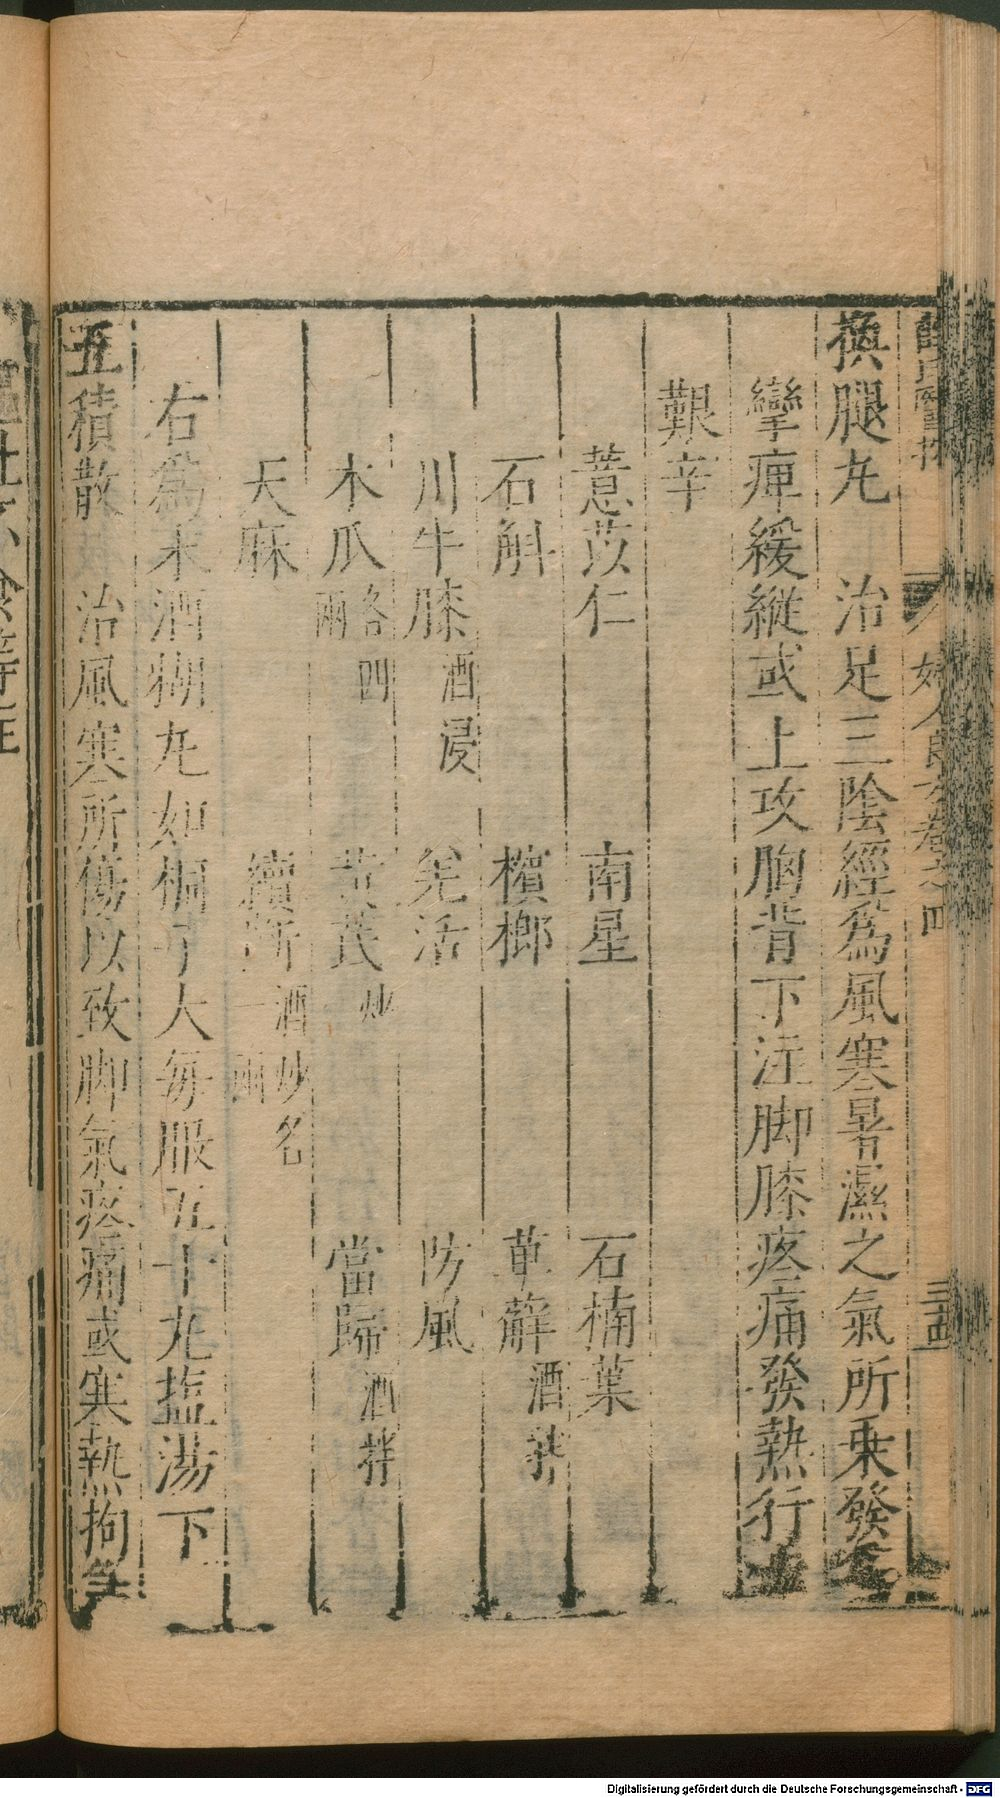 薛氏醫按 婦人良方卷之四 三十四
換腿丸 治足三陰經爲風寒暑濕之氣所乗發
攣痺緩縱或上攻胸背下注脚膝疼痛發熱行
艱辛
薏苡仁 南星 石楠葉
石斛 檳榔 萆薢酒拌
川牛膝酒浸 羌活 防風
木瓜各四兩 黄芪炒 當歸酒拌
天麻 續斷酒炒各一兩
右爲末酒糊丸如桐子大每服五十丸塩湯下
五積散 治風寒所傷以致脚氣疼痛或寒熱拘急
Digitalisierung gefördert durch die Deutsche Forschungsgemeinschaft - DFG